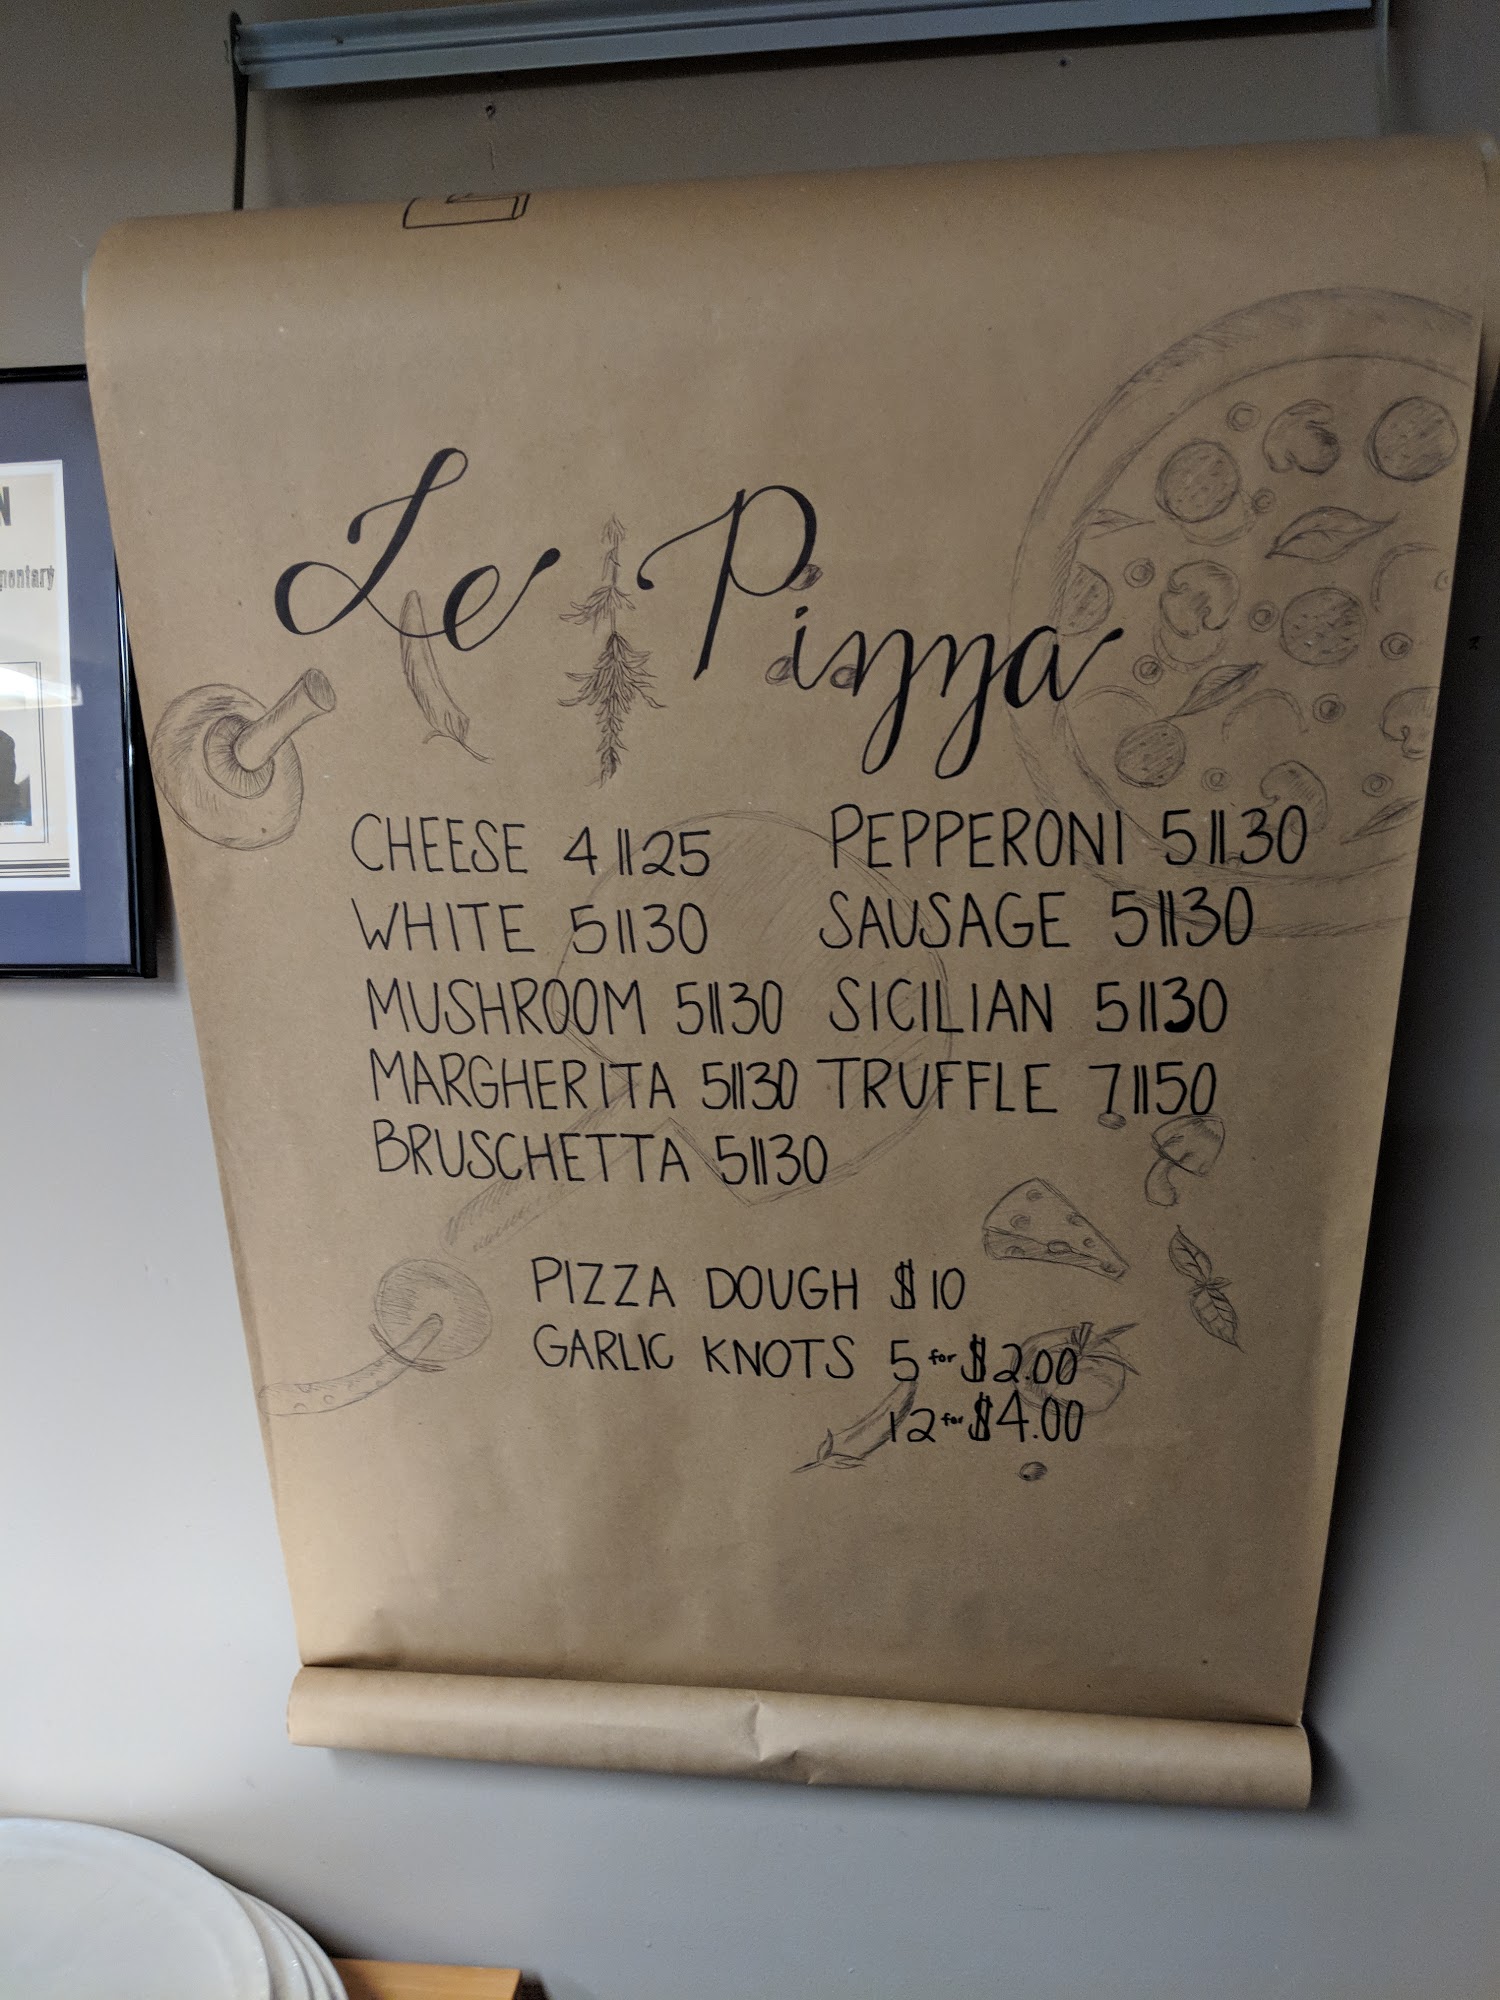 N
mentary
Le Pizza
CHEESE 4||25 PEPPERONI 5||30
WHITE 5||30 SAUSAGE 5||30
MUSHROOM 5||30 SICILIAN 5||30
MARGHERITA 5||30 TRUFFLE 7||50
BRUSCHETTA 5||30
PIZZA DOUGH $10
GARLIC KNOTS 5 for $2.00
12 for $4.00